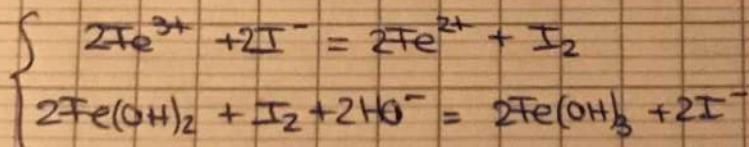 2Fe³⁺ + 2I⁻ = 2Fe²⁺ + I₂
2Fe(OH)₂ + I₂ + 2HO⁻ = 2Fe(OH)₃ + 2I⁻